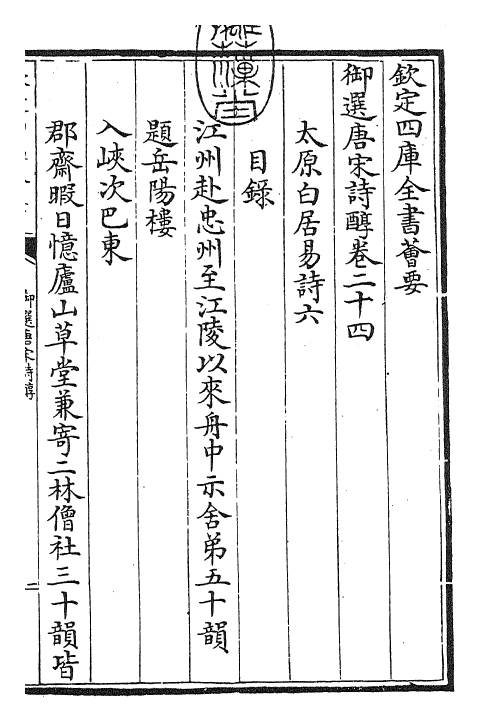 欽定四庫全書薈要
御選唐宋詩醇卷二十四
太原白居易詩六
目錄
江州赴忠州至江陵以來舟中示舍弟五十韻
題岳陽樓
入峽次巴東
郡齋暇日憶廬山草堂兼寄二林僧社三十韻皆
御選唐宋詩醇